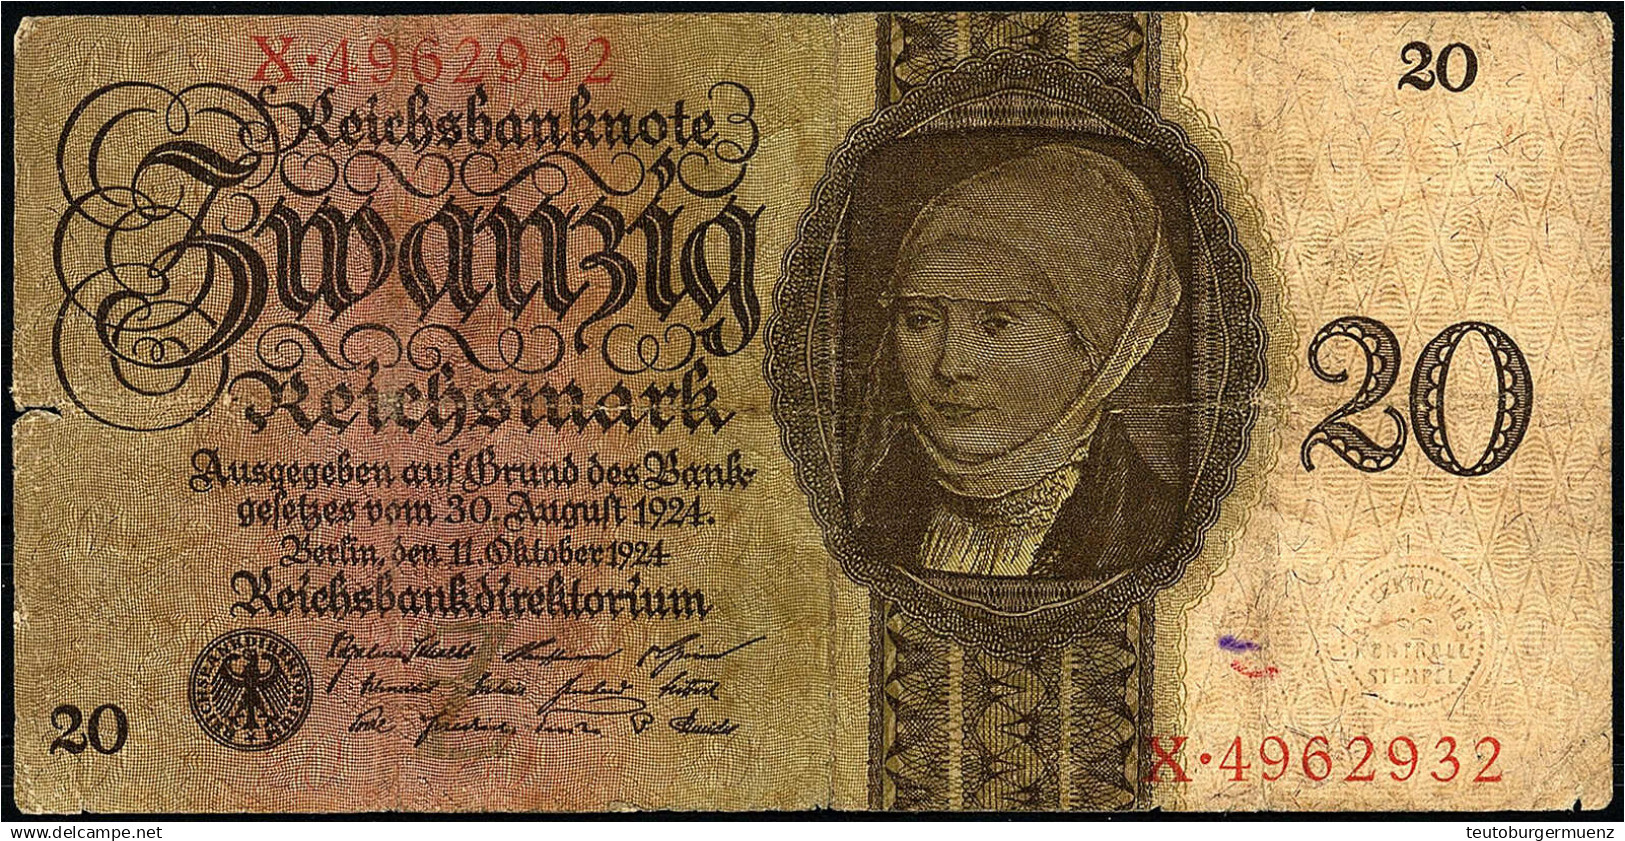 X·4962932
20
Reichsbanknote
Zwanzig
Reichsmark
20
Ausgegeben auf Grund des Bank-
gesetzes vom 30. August 1924.
Berlin, den 11. Oktober 1924
Reichsbankdirektorium
KONTROLL
STEMPEL
20
X·4962932
www.delcampe.net
teutoburgermuenz